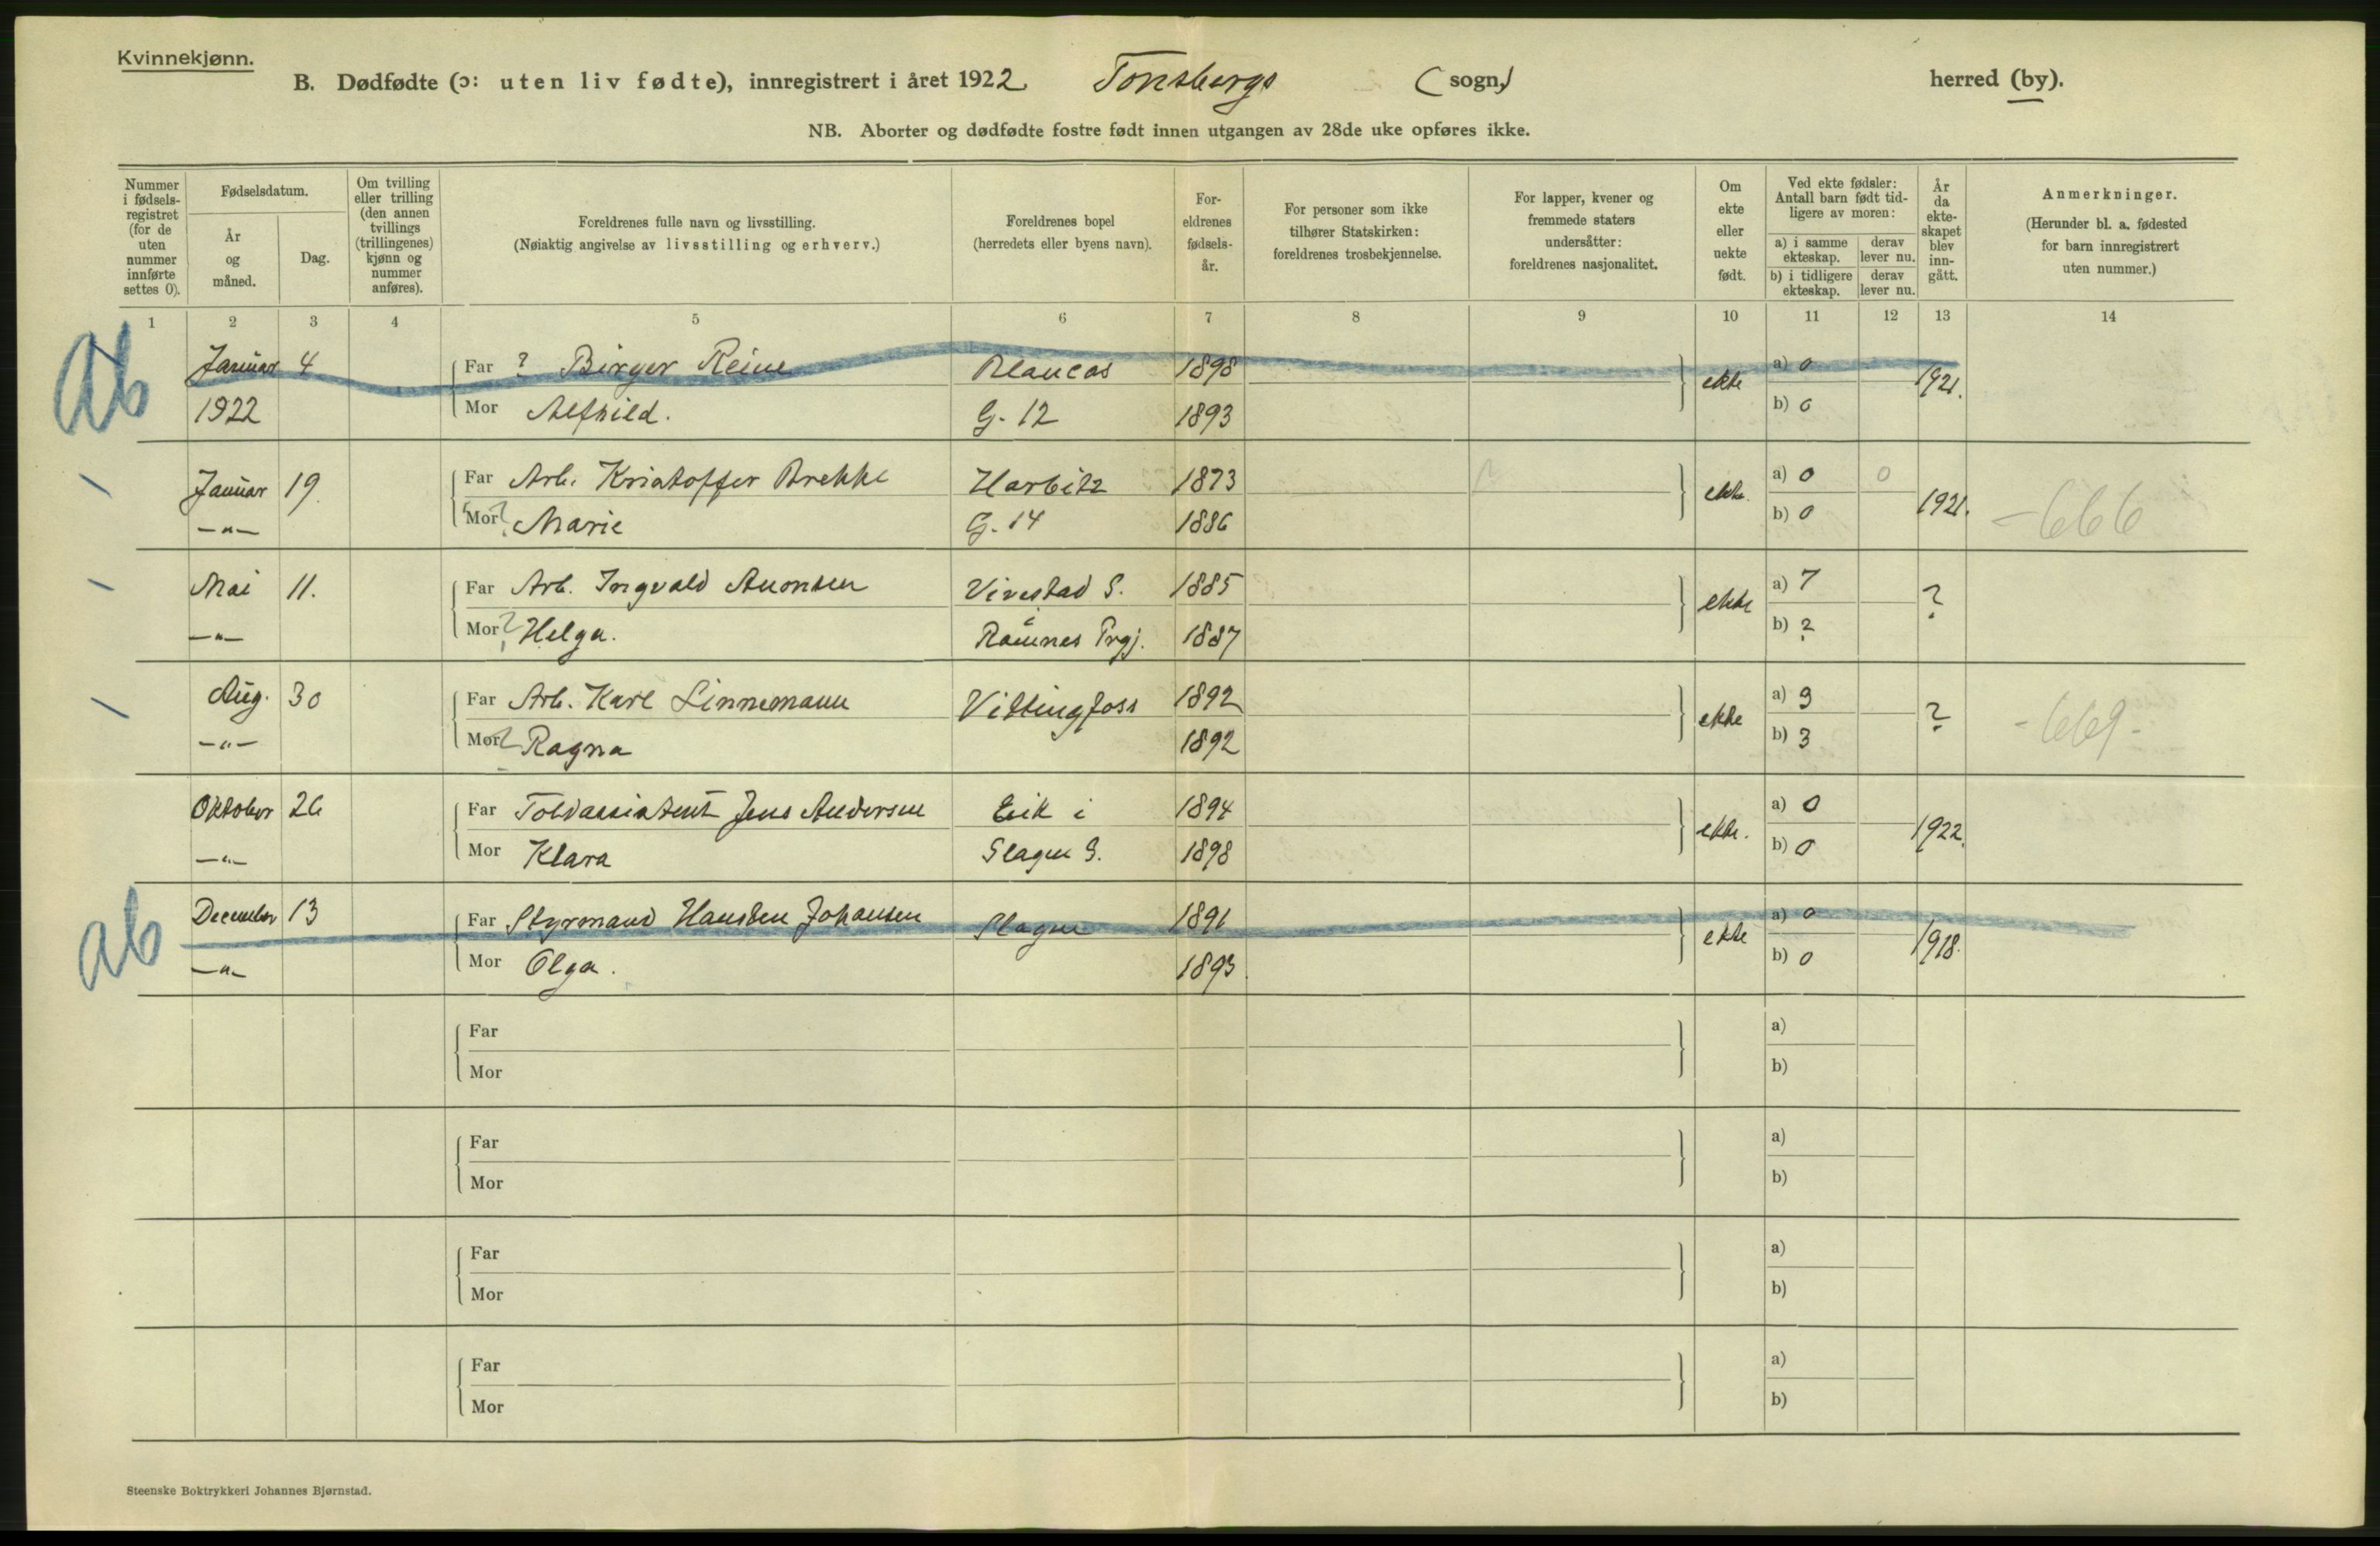 Kvinnekjønn.
B. Dødfødte (ɔ: uten liv fødte), innregistrert i året 1922 Tønsbergs (sogn,) herred (by).
NB. Aborter og dødfødte fostre født innen utgangen av 28de uke opføres ikke.
Nummer i fødsels-registret (for de uten nummer innførte settes 0).
Fødselsdatum.
År og måned.
Dag.
Om tvilling eller trilling (den annen tvillings (trillingenes) kjønn og nummer anføres).
Foreldrenes fulle navn og livsstilling.
(Nøiaktig angivelse av livsstilling og erhverv.)
Foreldrenes bopel
(herredets eller byens navn).
For-eldrenes fødsels-år.
For personer som ikke tilhører Statskirken: foreldrenes trosbekjennelse.
For lapper, kvener og fremmede staters undersåtter: foreldrenes nasjonalitet.
Om ekte eller uekte født.
Ved ekte fødsler: Antall barn født tid-ligere av moren:
a) i samme ekteskap.
derav lever nu.
b) i tidligere ekteskap.
derav lever nu.
År da ekte-skapet blev inn-gått.
Anmerkninger.
(Herunder bl. a. fødested for barn innregistrert uten nummer.)
1 2 3 4 5 6 7 8 9 10 11 12 13 14
Ab
Januar 4 Far ? Birger Reine 1898 ekte a) 0 1921.
1922 Mor Alfhild. G. 12 1893 b) 0
Januar 19. Far Arb. Kristoffer Brekke Harbitz 1873 ekte. a) 0 0 1921. -666
-"- Mor ? Marie G. 14 1886 b) 0
Mai 11. Far Arb. Ingvald 1885 ekte a) 7 ?
-"- Mor ? Helga. Ramnes Prgj. 1887 b) ?
Aug. 30 Far Arb. Karl Linnemann Vittingfoss 1892 ekte a) 9 ? -669-
-"- Mor ? Ragna 1892 b) 3
Oktober 26 Far Toldassistent Jens Andersen Eik i 1894 ekte. a) 0 1922.
-"- Mor Klara Slagen S. 1898 b) 0
ab
December 13 Far Styrmand Johansen Slagen 1891 ekte a) 0 1918.
-"- Mor Olga. 1893 b) 0
Far a)
Mor b)
Far a)
Mor b)
Far a)
Mor b)
Far a)
Mor b)
Steenske Boktrykkeri Johannes Bjørnstad.